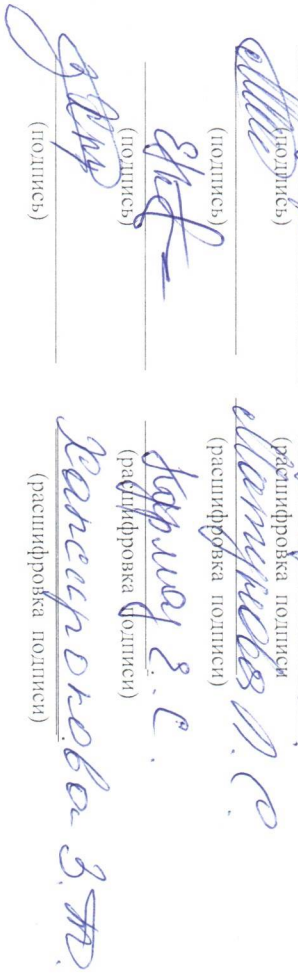 (подпись) (расшифровка подписи
Матукова Л. С.
(подпись) (расшифровка подписи)
Е. С.
(подпись) (расшифровка подписи)
Хапсирокова З. Т.
(подпись) (расшифровка подписи)